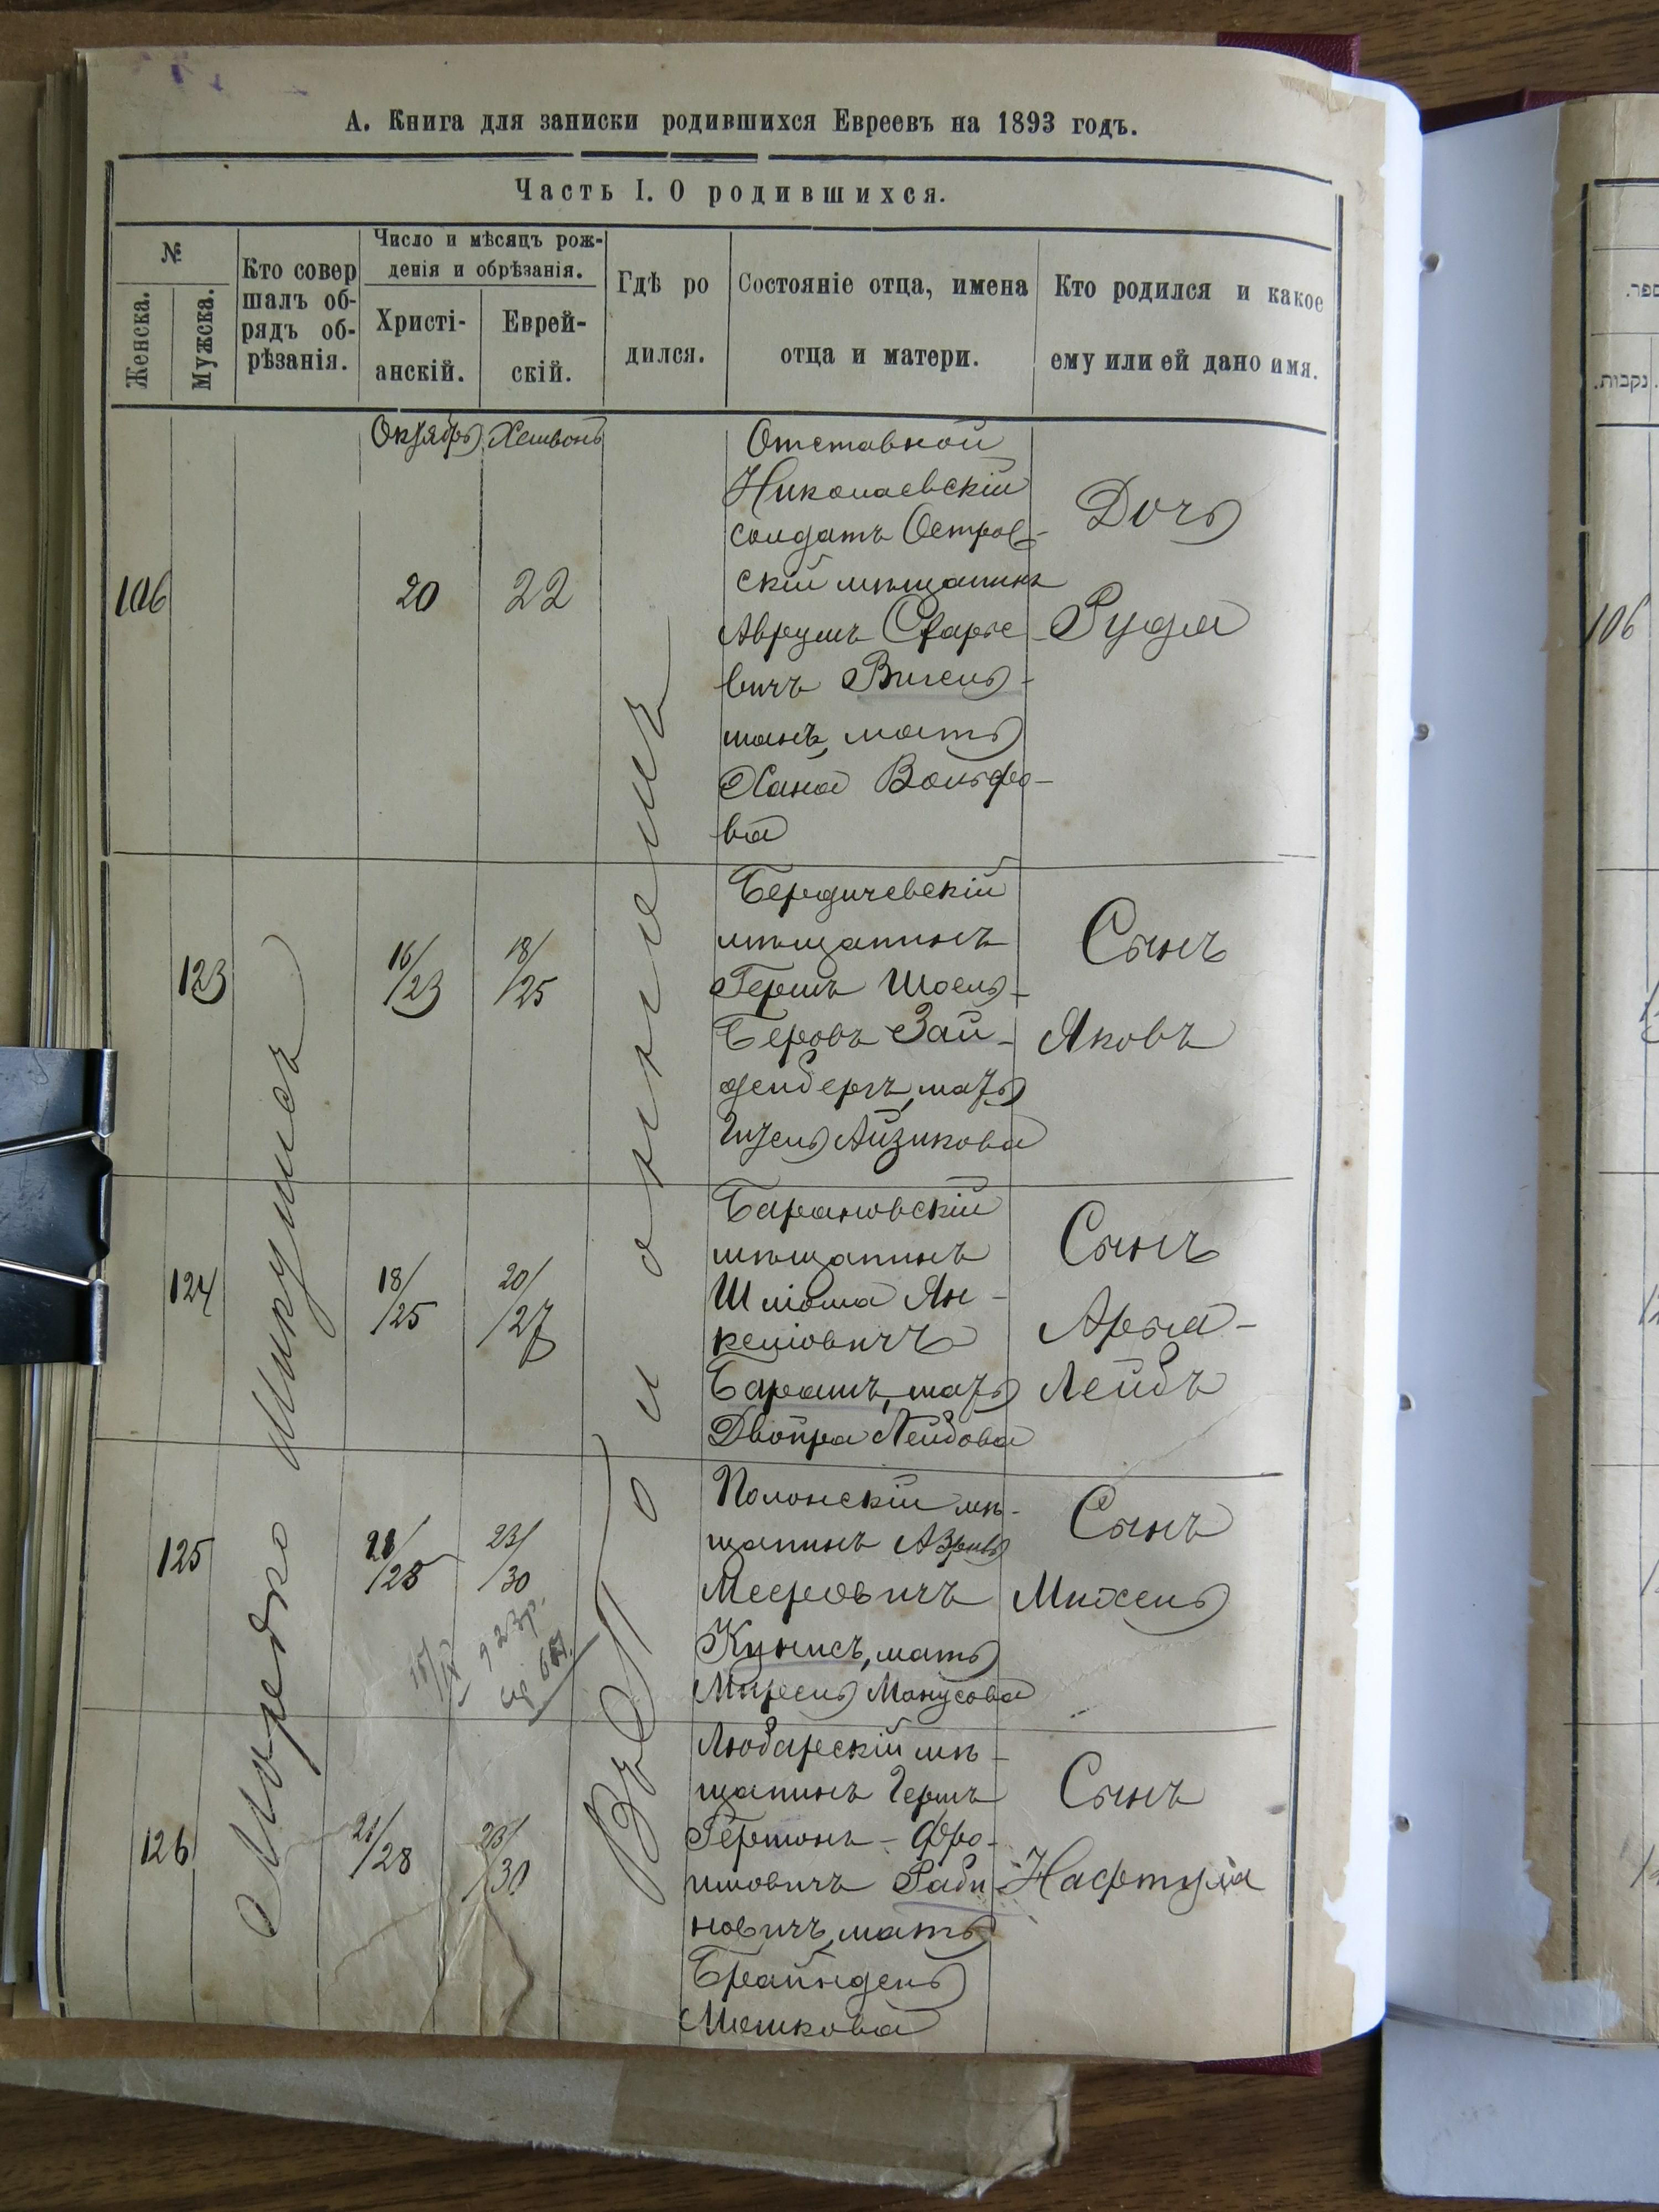 А. Книга для записки родившихся Евреевъ на 1893 годъ.
Часть I. О родившихся.
№
Женска.
Мужска.
Кто совер
шалъ об-
рядъ об-
рѣзанія.
Число и мѣсяцъ рож-
денія и обрѣзанія.
Христі-
анскій.
Еврей-
скій.
Гдѣ ро
дился.
Состояніе отца, имена
отца и матери.
Кто родился и какое
ему или ей дано имя.
Октябрь Хешвонъ
106
20
22
Отставной
Николаевскій
солдатъ Остров-
скій мѣщанинъ
Аврумъ
вичъ
манъ, мать
Хана Вольфо-
ва
Дочь
Рухля
Мордко
Въ г Полонномъ
123
16/23
18/25
Бердичевскій
мѣщанинъ
Гершъ Шоель-
Беровъ Зай-
денбергъ, мать
Гитель Айзикова
Сынъ
Яковъ
124
18/25
20/27
Барановскій
мѣщанинъ
Шлиома Ян-
келіовичъ
Барашъ, мать
Двойра Лейбова
Сынъ
Арыя-
Лейбъ
125
21/28
23/30
Полонскій мѣ-
щанинъ Азриль
Мееровичъ
Кунисъ, мать
Манусова
Сынъ
Михель
126
21/28
23/30
Любарскій мѣ-
щанинъ Гершъ
Гершонъ-Фро-
имовичъ Раби-
новичъ, мать
Брайндель
Мошкова
Сынъ
Нафтула
נקבות.
106